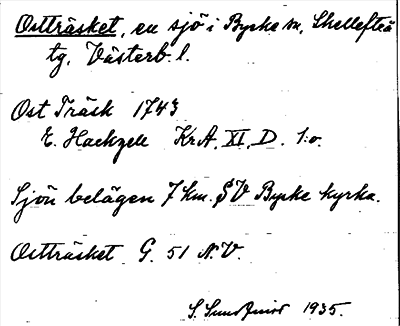 Ostträsket, en sjö i Byske sn, Skellefteå
tg, Västerb. l.
Ost Träsk 1743
E. Hackzell KrA, XI, D. 1:o.
Sjön belägen 7 km. SV Byske kyrka.
Ostträsket G. 51 N.V.
S. 1935.